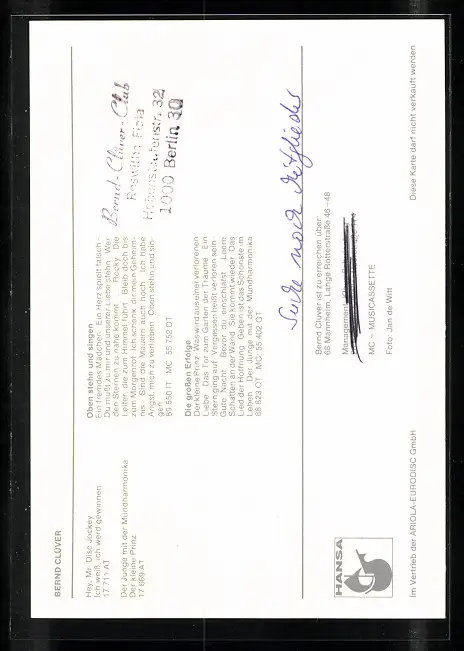 BERND CLÜVER
Hey, Mr. Disc Jockey
Ich weiß, ich werd gewinnen
17 711 AT
Der Junge mit der Mundharmonika
Der kleine Prinz
17 669 AT
Oben stehn und singen
Ein fremdes Mädchen. Ein Herz spielt falsch.
Du mußt zu mir und unserer Liebe stehn. Wer
den Sternen zu nahe kommt. Rocky. Die
Leiter, die zum Himmel führt. Bleib doch bis
zum Morgenrot. Ich schenk dir mein Geheim-
nis. Sind die Mauern auch hoch. Ich habe
Angst, mich zu verlieben. Oben stehn und sin-
gen
89 550 IT MC 55 752 DT
Die großen Erfolge
Der kleine Prinz. Was wird aus einer verlorenen
Liebe. Das Tor zum Garten der Träume. Ein
Stern ging auf. Vergessen heißt verloren sein.
Gute Nacht. Bevor du einschläfst. Leere.
Schatten an der Wand. Sie kommt wieder. Das
Lied der Hoffnung. Geben ist das Schönste im
Leben. Der Junge mit der Mundharmonika
88 623 OT MC 55 402 GT
Bernd-Clüver-Club
Roswitha
Hohenstaufenstr. 32
1000 Berlin 30
Suche noch Mitglieder
Bernd Clüver ist zu erreichen über
68 Mannheim, Lange Rötterstraße 46-48
Management
MC - MUSICASSETTE
Foto: Jan de Witt
HANSA
Im Vertrieb der ARIOLA-EURODISC GmbH
Diese Karte darf nicht verkauft werden